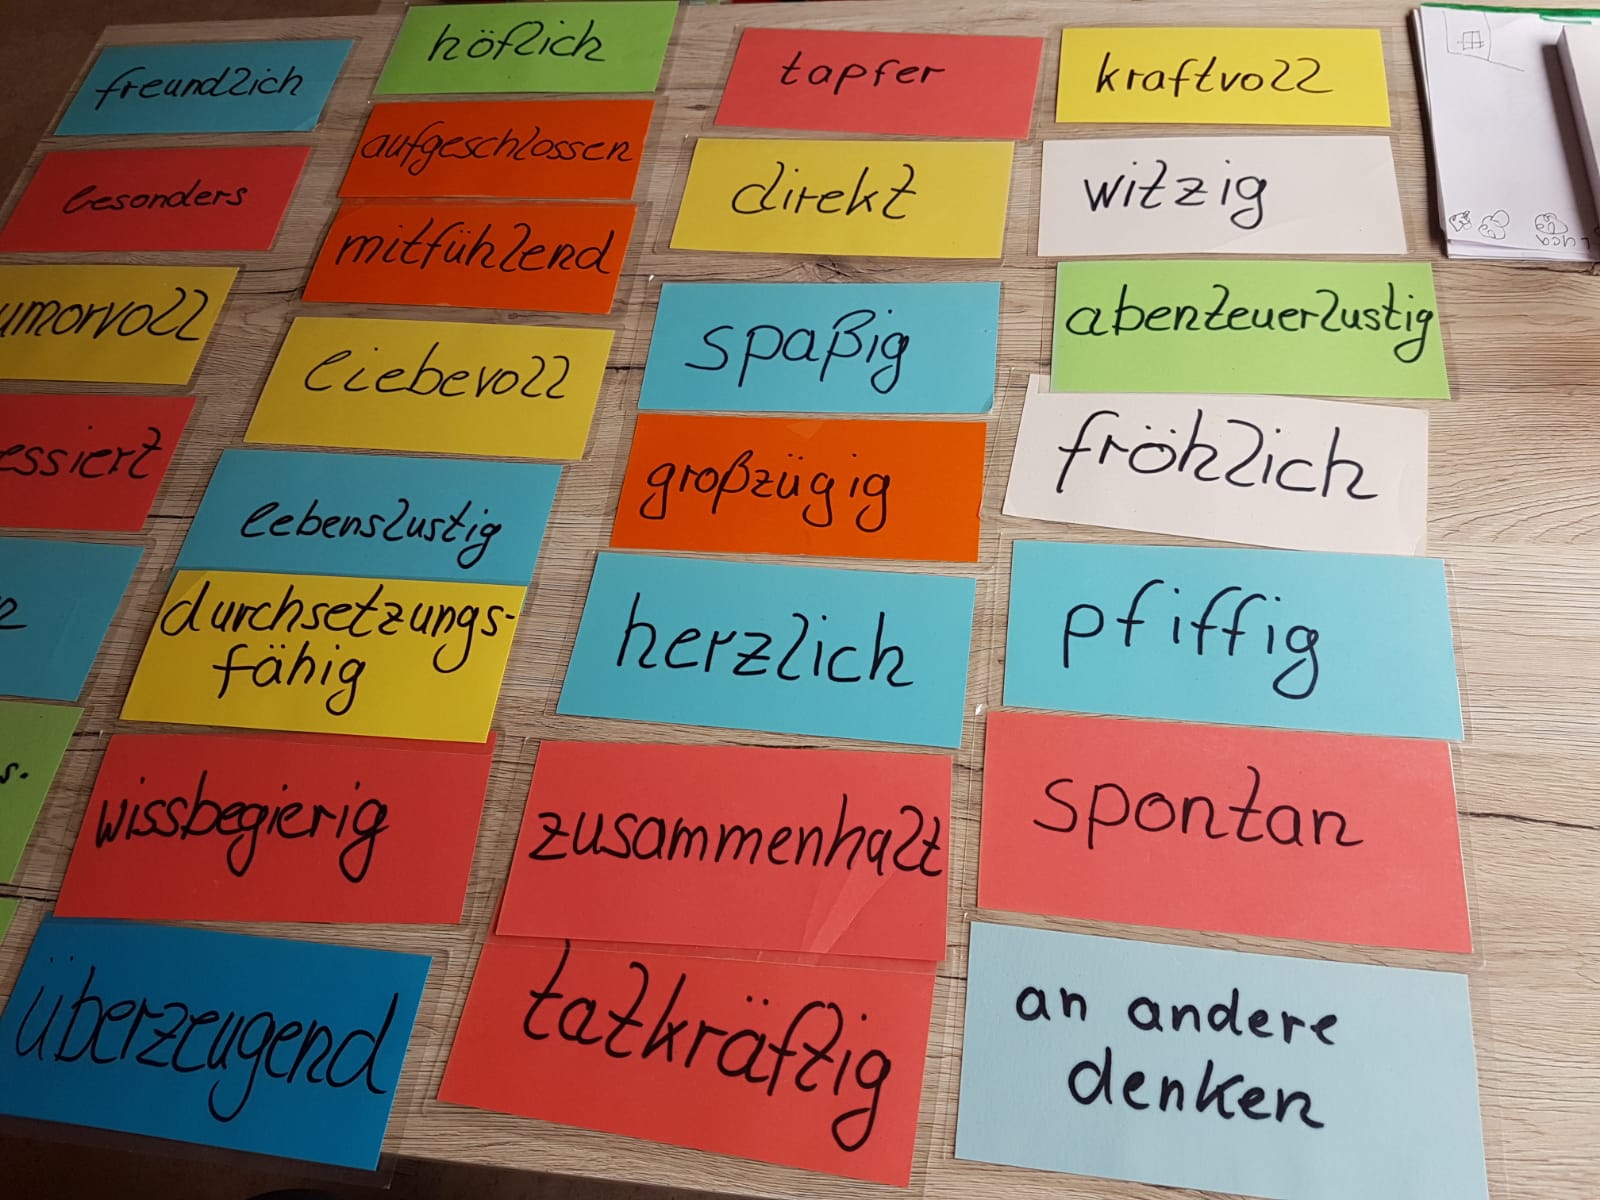 freundlich
besonders
umorvoll
essiert
s.
höflich
aufgeschlossen
mitfühlend
liebevoll
lebenslustig
durchsetzungs-
fähig
wissbegierig
überzeugend
tapfer
direkt
spaßig
großzügig
herzlich
zusammenhalt
tatkräftig
kraftvoll
witzig
abenteuerlustig
fröhlich
pfiffig
spontan
an andere
denken
Luca